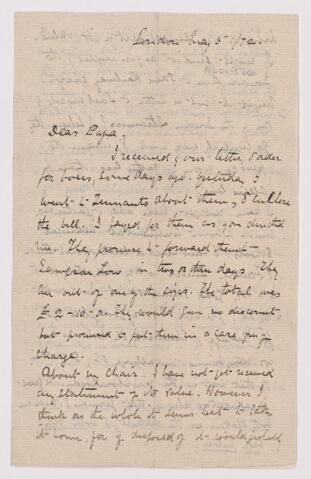 London 5 /72.
Dear Papa.
I received your letter, & order
for boxes, some days ago. Yesterday I
went to Tennants about them, & enclose
the bill. I payed for them as you directed
me. They promise to forward them to
in two or three days. They
are out of one of the sizes. The total was
£2-10- as they would give no discount,
but promised to put them in a case free of
charge.
About my Chair. I have not yet received
any statement of its value. However I
think on the whole it seems best to take
it home, for if disposed of it would